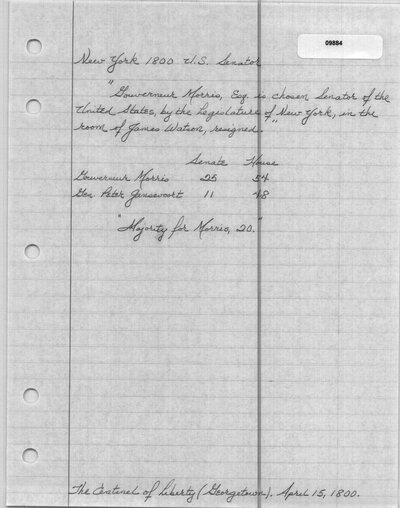 09884
New York 1800 U.S. Senator
"Gouverneur Morris, Esq. is chosen Senator of the
United States, by the Legislature of New York, in the
room of James Watson, resigned."
Senate House
Gouverneur Morris 25 54
Gen. Peter Gansevoort 11 48
"Majority for Morris, 20."
The Centinel of Liberty (Georgetown). April 15, 1800.